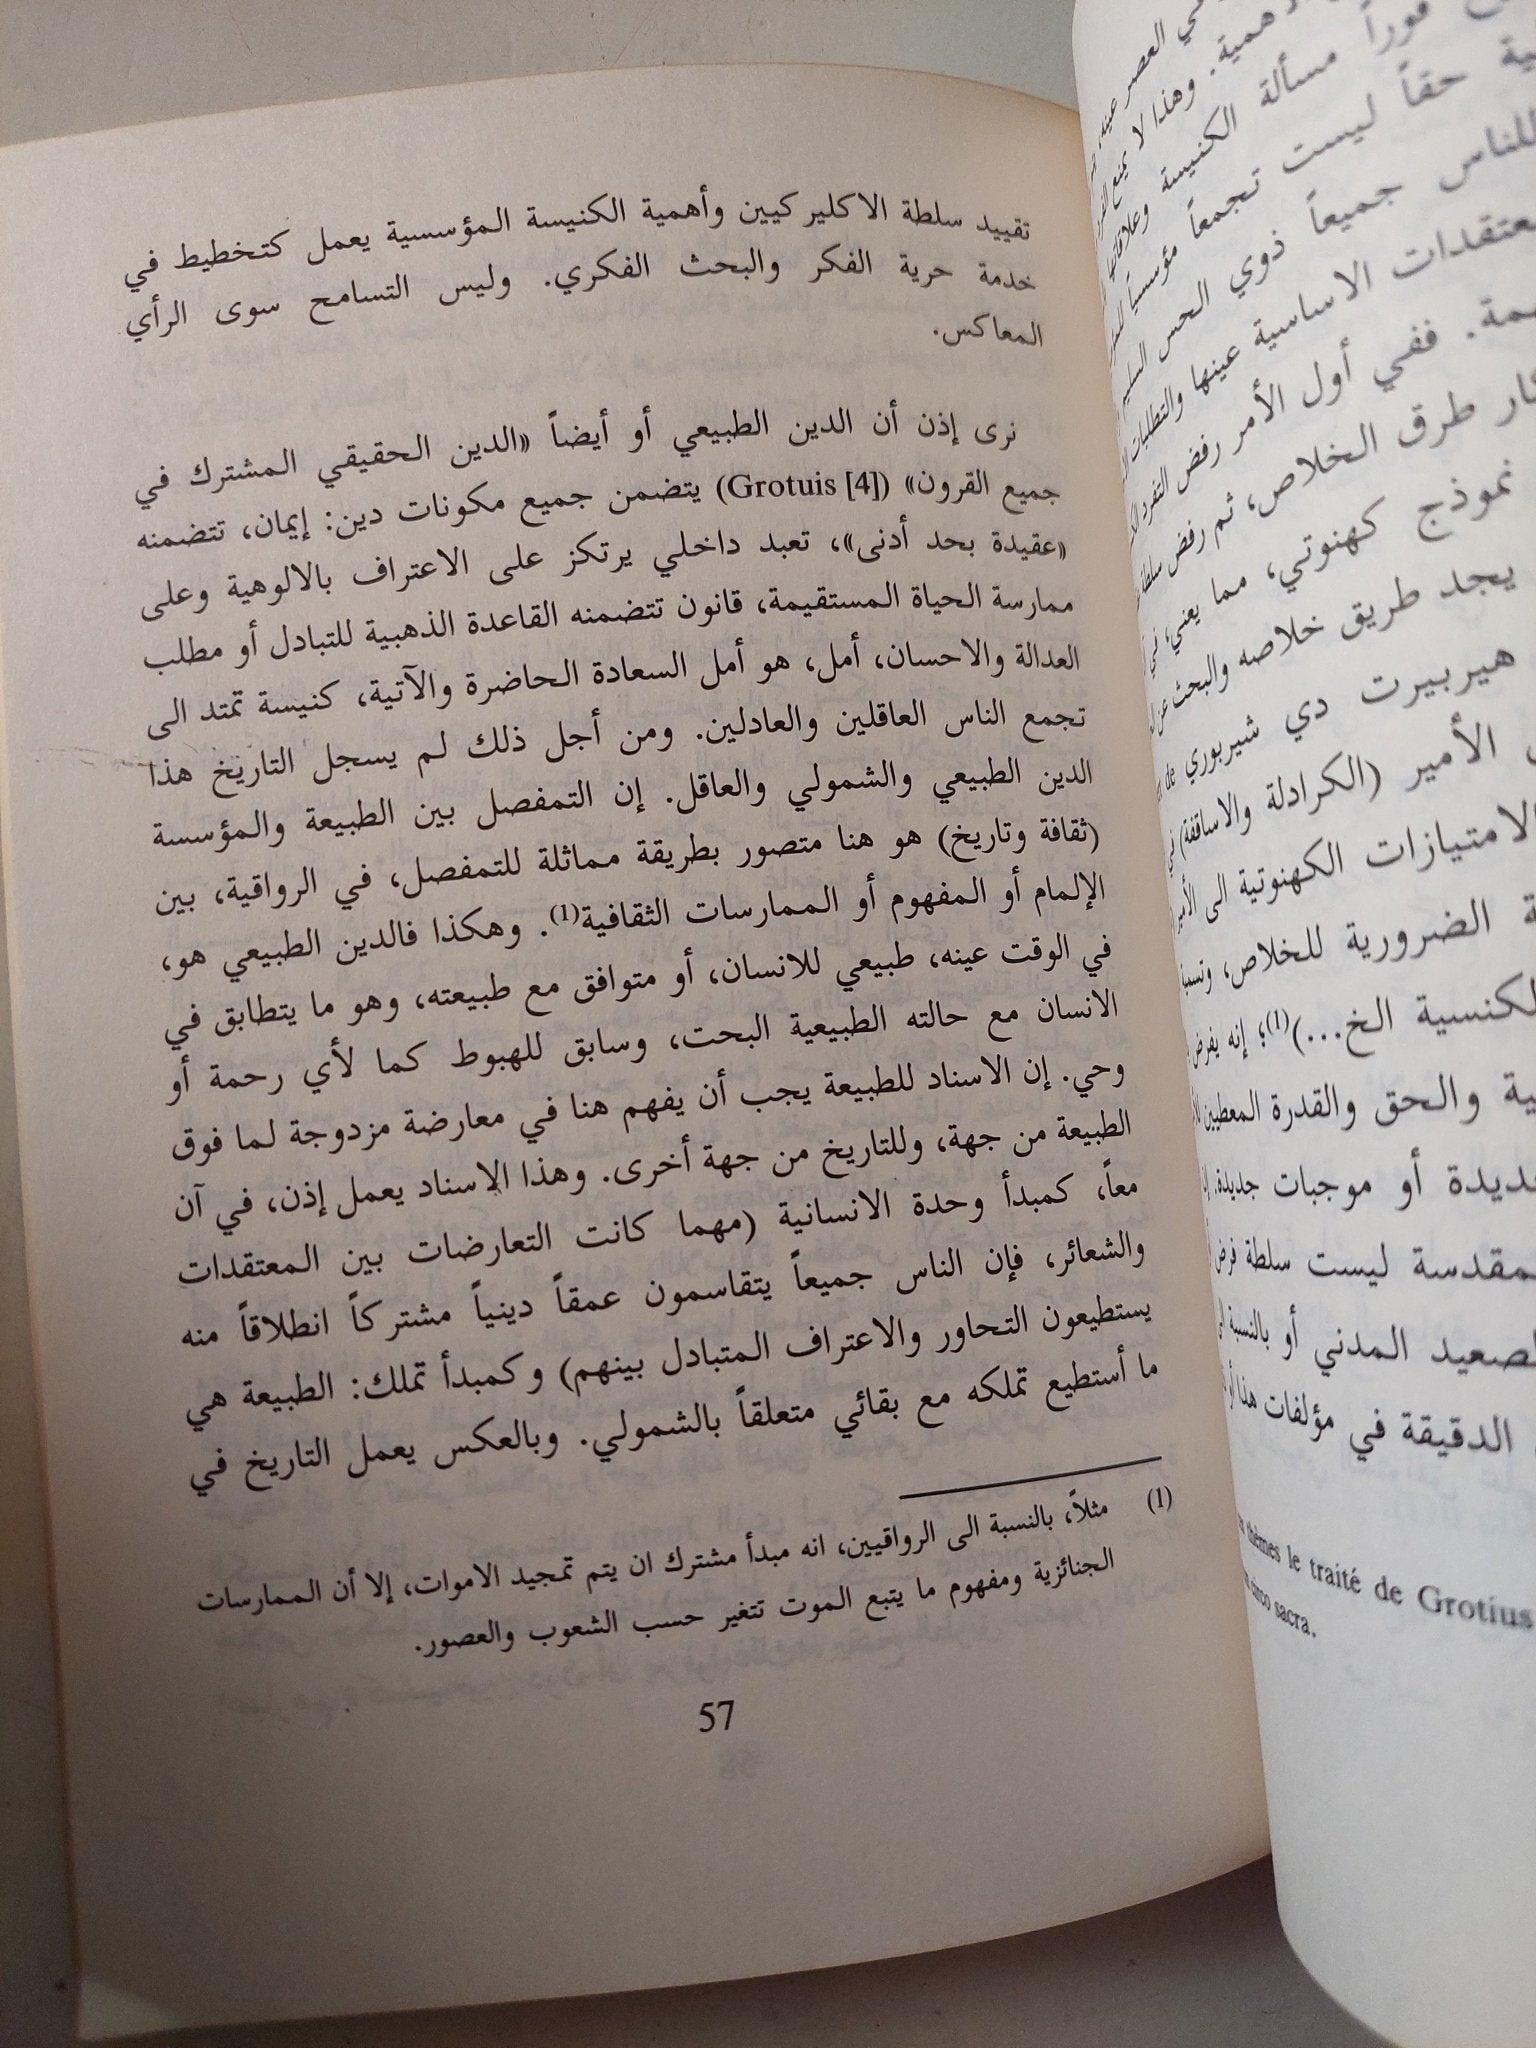 تقييد سلطة الاكليركيين وأهمية الكنيسة المؤسسية يعمل كتخطيط في
خدمة حرية الفكر والبحث الفكري. وليس التسامح سوى الرأي
المعاكس.
نرى إذن أن الدين الطبيعي أو أيضاً «الدين الحقيقي المشترك في
جميع القرون» (Grotuis [4]) يتضمن جميع مكونات دين: إيمان، تتضمنه
«عقيدة بحد أدنى»، تعبد داخلي يرتكز على الاعتراف بالالوهية وعلى
ممارسة الحياة المستقيمة، قانون تتضمنه القاعدة الذهبية للتبادل أو مطلب
العدالة والاحسان، أمل، هو أمل السعادة الحاضرة والآتية، كنيسة تمتد الى
تجمع الناس العاقلين والعادلين. ومن أجل ذلك لم يسجل التاريخ هذا
الدين الطبيعي والشمولي والعاقل. إن التمفصل بين الطبيعة والمؤسسة
(ثقافة وتاريخ) هو هنا متصور بطريقة مماثلة للتمفصل، في الرواقية، بين
الإلمام أو المفهوم أو الممارسات الثقافية(1). وهكذا فالدين الطبيعي هو،
في الوقت عينه، طبيعي للانسان، أو متوافق مع طبيعته، وهو ما يتطابق في
الانسان مع حالته الطبيعية البحت، وسابق للهبوط كما لأي رحمة أو
وحي. إن الاسناد للطبيعة يجب أن يفهم هنا في معارضة مزدوجة لما فوق
الطبيعة من جهة، وللتاريخ من جهة أخرى. وهذا الاسناد يعمل إذن، في آن
معاً، كمبدأ وحدة الانسانية (مهما كانت التعارضات بين المعتقدات
والشعائر، فإن الناس جميعاً يتقاسمون عمقاً دينياً مشتركاً انطلاقاً منه
يستطيعون التحاور والاعتراف المتبادل بينهم) وكمبدأ تملك: الطبيعة هي
ما أستطيع تملكه مع بقائي متعلقاً بالشمولي. وبالعكس يعمل التاريخ في
(1) مثلاً، بالنسبة الى الرواقيين، انه مبدأ مشترك ان يتم تمجيد الاموات، إلا أن الممارسات
الجنائزية ومفهوم ما يتبع الموت تتغير حسب الشعوب والعصور.
57
في العصر عينه،
الأهمية. وهذا لا يمنع
فوراً مسألة الكنيسة وعلاقاتها
حقاً ليست تجمعاً مؤسسياً
للناس جميعاً ذوي الحس السليم
معتقدات الاساسية عينها والتطلبات
ففي أول الأمر رفض التفرد
طرق الخلاص، ثم رفض سلطة
نموذج كهنوتي، مما يعني، في
يجد طريق خلاصه والبحث عن
هيربيرت دي شيربوري de
الأمير (الكرادلة والاساقفة) في
الامتيازات الكهنوتية الى الأمير
الضرورية للخلاص،
الكنسية الخ...)(1)؛ إنه يفرض
والحق والقدرة المعطين
جديدة أو موجبات جديدة.
المقدسة ليست سلطة فرض
الصعيد المدني أو بالنسبة الى
الدقيقة في مؤلفات هذا أو
thèmes le traité de Grotius
circo sacra.